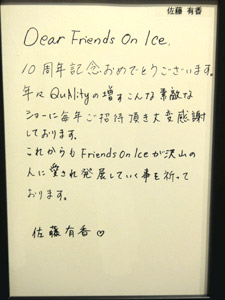 佐藤 有香
Dear Friends On Ice.
10周年記念おめでとうございます。
年々Qualityの増すこんな素敵な
ショーに毎年ご招待頂き大変感謝
しております。
これからもFriends On Iceが沢山の
人に愛され発展していく事を祈って
おります。
佐藤有香♡